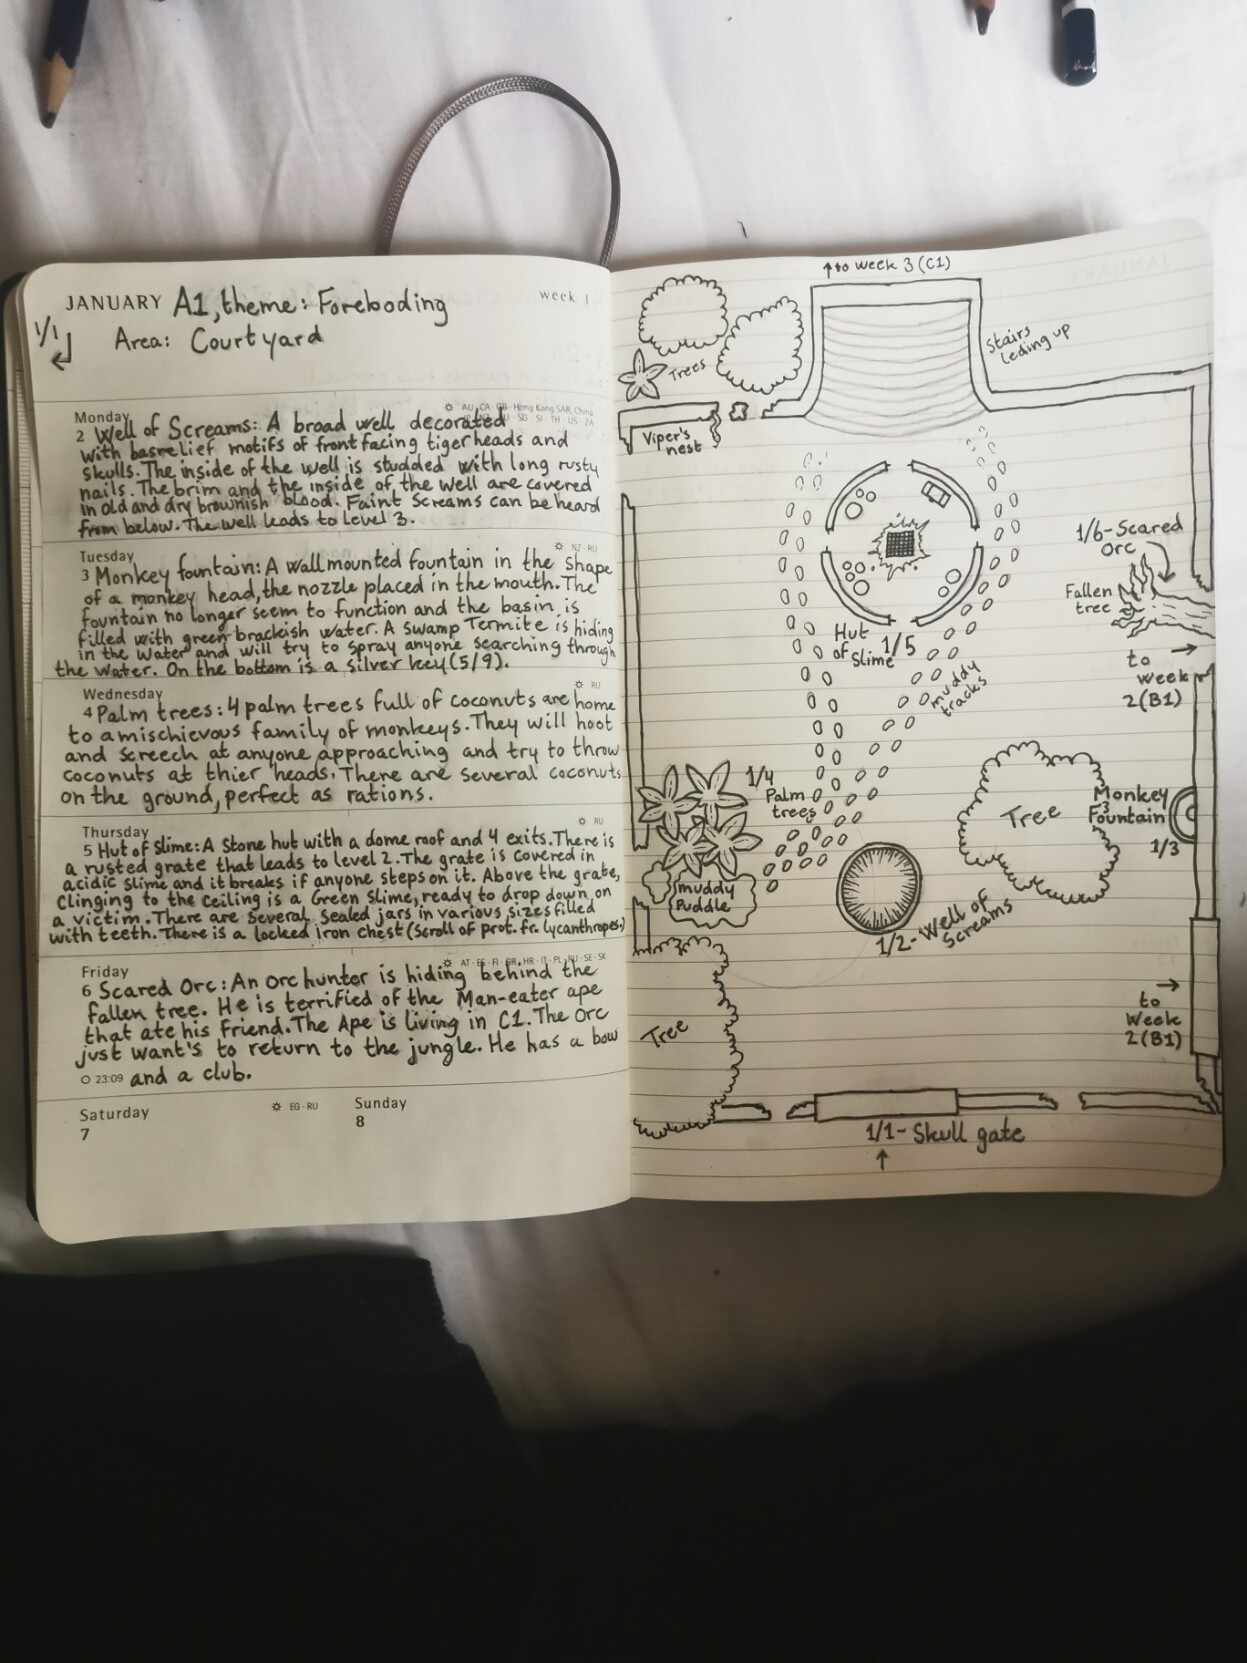 JANUARY A1, theme: Foreboding
week 1
1/1
Area: Courtyard
Monday
AU · CA · GB · Hong Kong SAR, China
2 Well of Screams: A broad well decorated
with basrelief motifs of front facing tiger heads and
skulls. The inside of the well is studded with long rusty
nails. The brim and the inside of the well are covered
in old and dry brownish blood. Faint Screams can be heard
from below. The well leads to level 3.
Tuesday
NZ · RU
3 Monkey fountain: A wall mounted fountain in the shape
of a monkey head, the nozzle placed in the mouth. The
fountain no longer seem to function and the basin is
filled with green brackish water. A swamp Termite is hiding
in the water and will try to spray anyone searching through
the water. On the bottom is a silver key (5/9).
Wednesday
RU
4 Palm trees: 4 palm trees full of coconuts are home
to a mischievous family of monkeys. They will hoot
and screech at anyone approaching and try to throw
coconuts at thier heads. There are several coconuts
on the ground, perfect as rations.
Thursday
RU
5 Hut of Slime: A Stone hut with a dome roof and 4 exits. There is
a rusted grate that leads to level 2. The grate is covered in
acidic slime and it breaks if anyone steps on it. Above the grate,
clinging to the ceiling is a Green Slime, ready to drop down on
a victim. There are several sealed jars in various sizes filled
with teeth. There is a locked iron chest (Scroll of prot. fr. lycanthropes.)
Friday
AT · ES · FI · GR · HR · IT · PL · RU · SE · SK
6 Scared Orc: An orc hunter is hiding behind the
fallen tree. He is terrified of the Man-eater ape
that ate his friend. The Ape is living in C1. The Orc
just want's to return to the jungle. He has a bow
23:09 and a club.
Saturday
7
EG · RU
Sunday
8
↑ to week 3 (C1)
Stairs
leding up
Trees
Viper's
nest
1/6 - Scared
Orc
Fallen
tree
Hut
of
Slime 1/5
to
week
2 (B1)
muddy
tracks
1/4
Palm
trees
Tree
Monkey
Fountain
3
1/3
muddy
Puddle
1/2 - Well of
Screams
Tree
to
Week
2 (B1)
1/1 - Skull gate